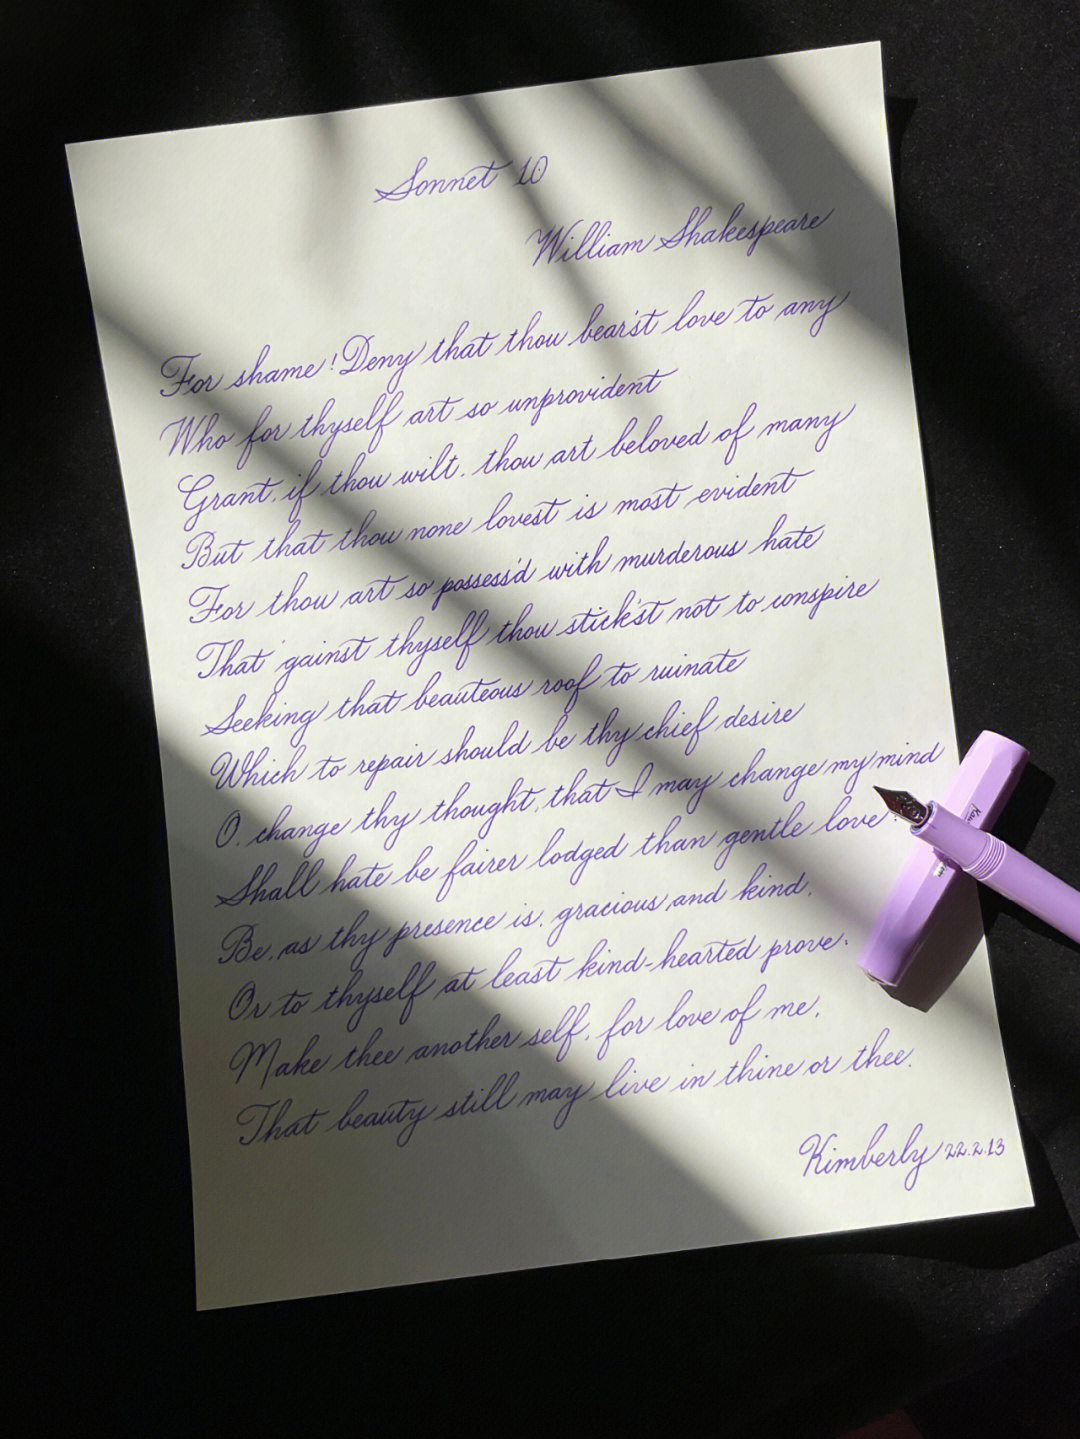 Sonnet 10
William Shakespeare
For shame! Deny that thou bear'st love to any
Who for thyself art so unprovident
Grant, if thou wilt, thou art beloved of many
But that thou none lovest is most evident
For thou art so possess'd with murderous hate
That 'gainst thyself thou stick'st not to conspire
Seeking that beauteous roof to ruinate
Which to repair should be thy chief desire
O, change thy thought, that I may change my mind
Shall hate be fairer lodged than gentle love?
Be, as thy presence is, gracious and kind,
Or to thyself at least kind-hearted prove:
Make thee another self, for love of me,
That beauty still may live in thine or thee.
Kimberly 22.2.13